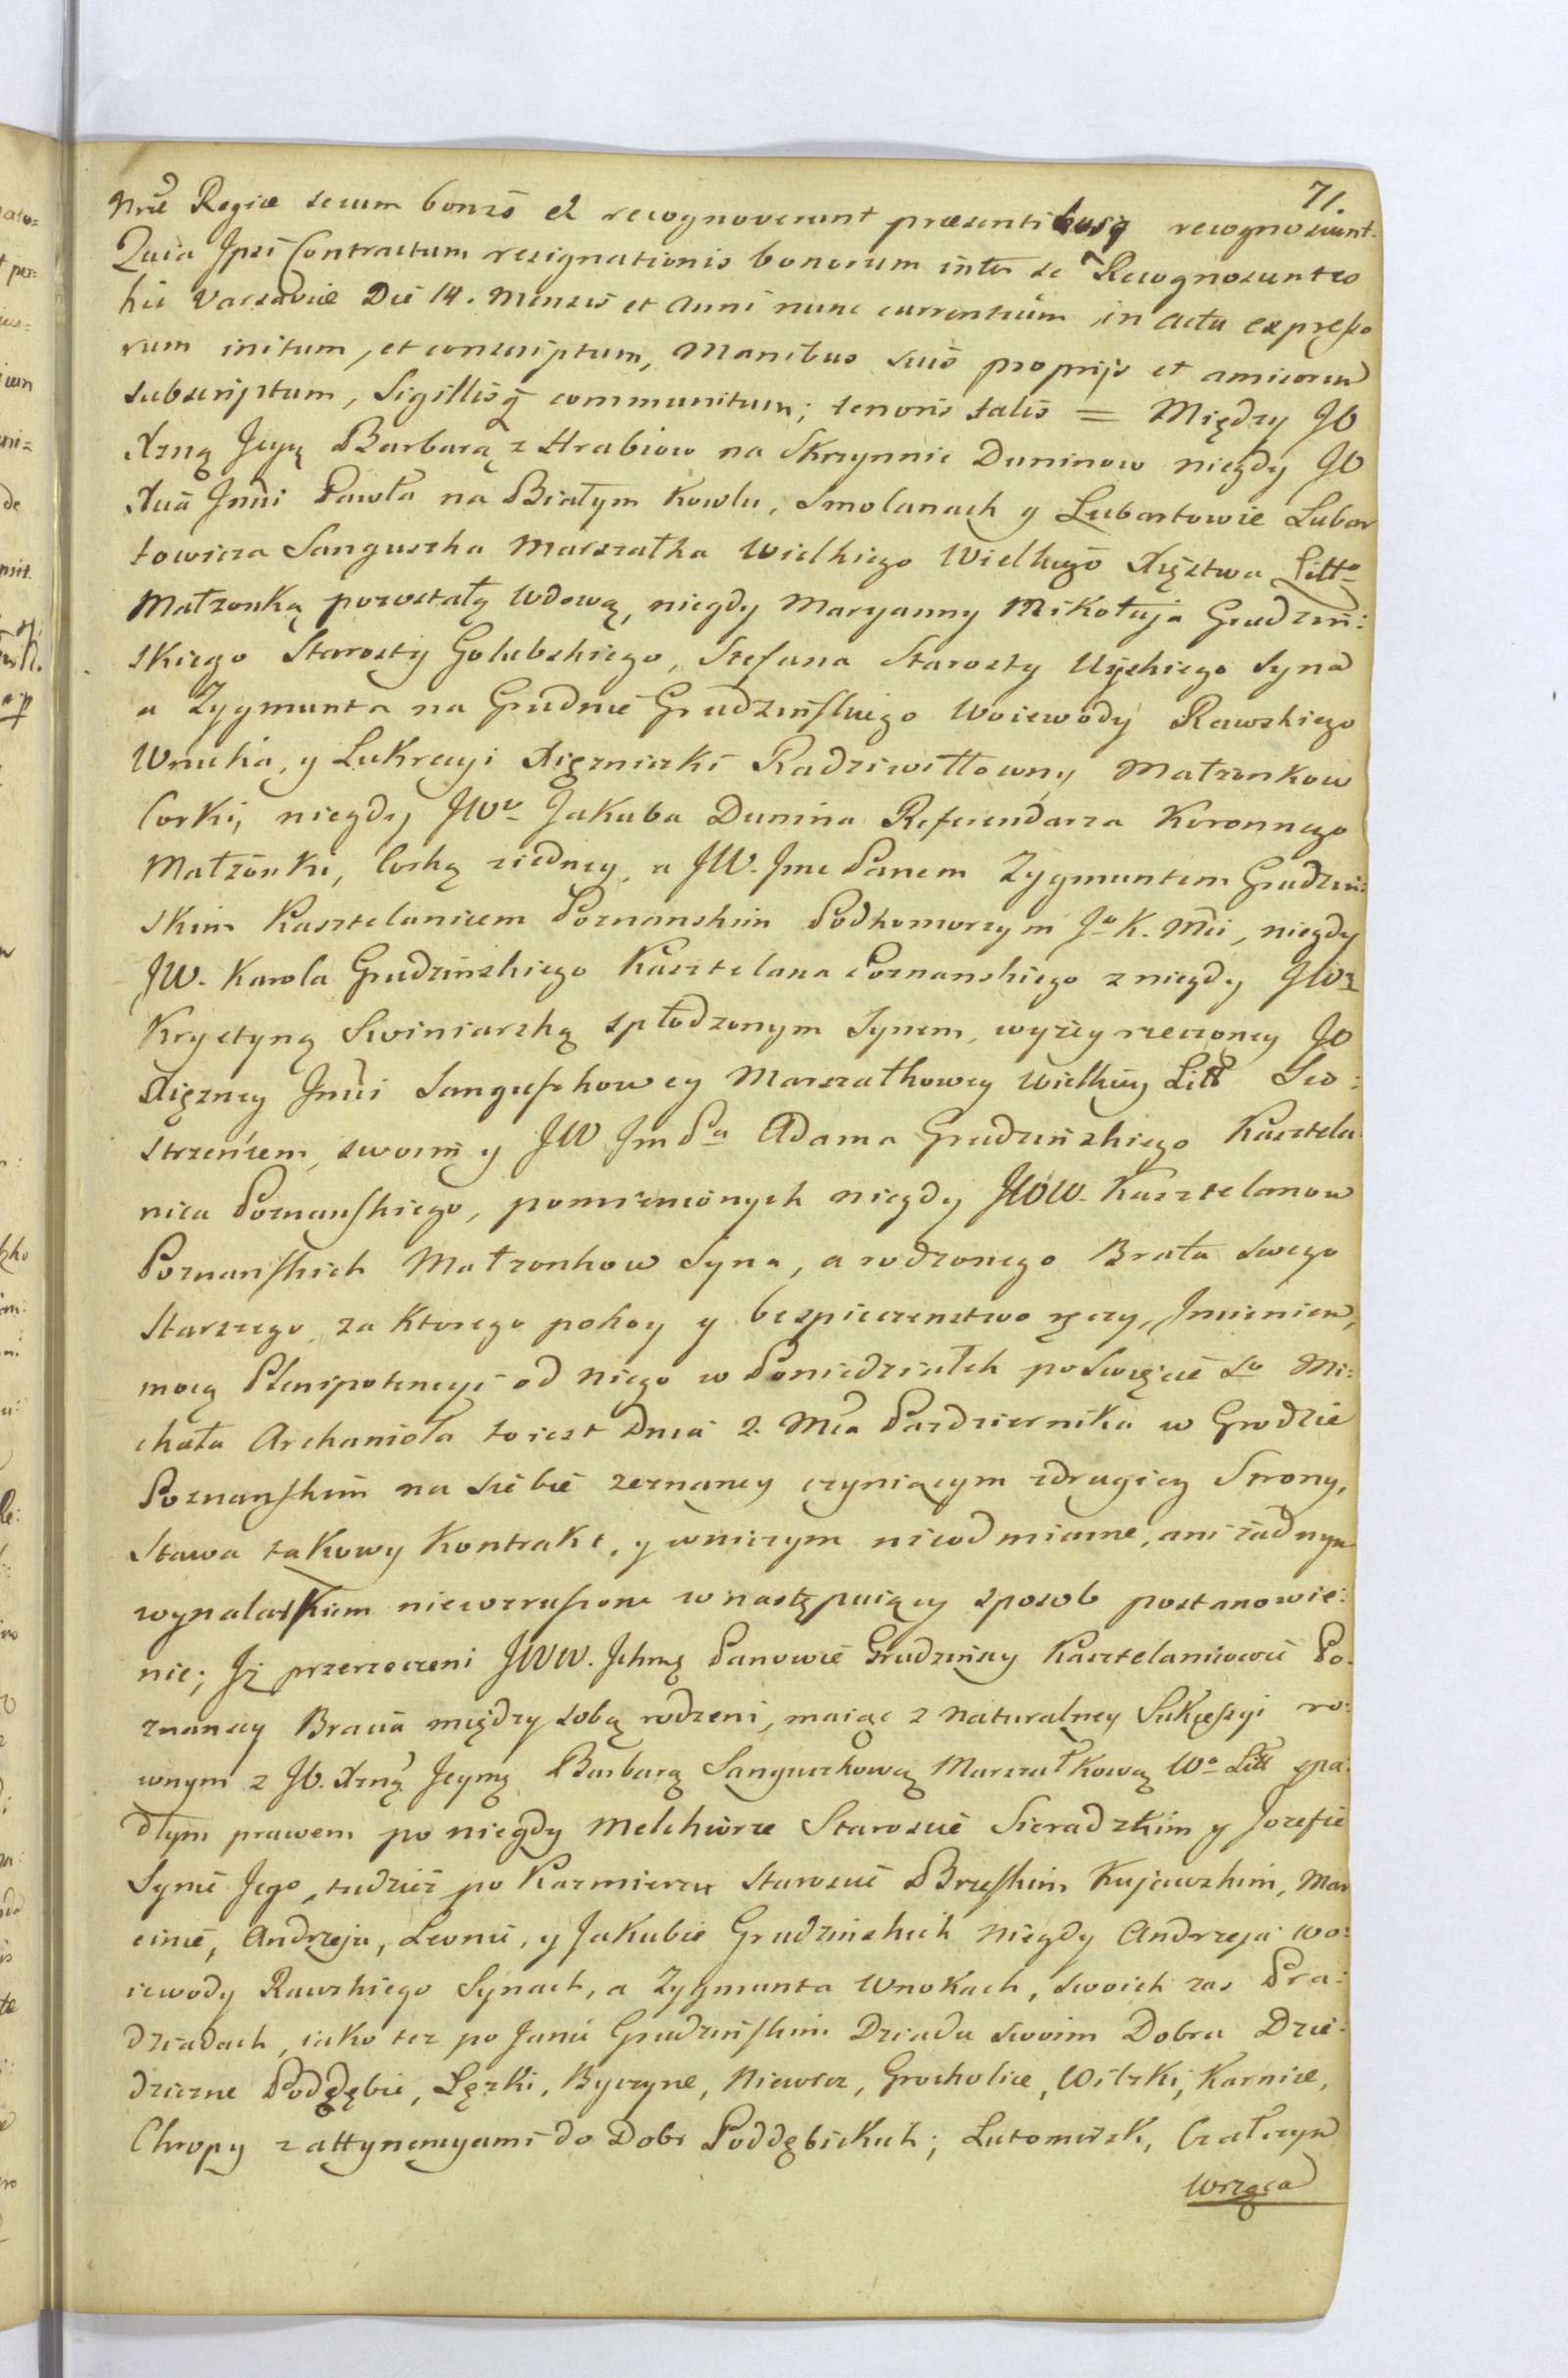 71.
Nrae Regiae secum bonis et recognoverunt praesentibusq recognoscunt.
Quia Ipsi Contractum resignationis bonorum inter se Recognoscentes
hic Varsaviae Die 14. Mensis et Anni nunc currentium in actu expresso
rum initum, et conscriptum, Manibus suis proprijs et amicorum
subscriptum, Sigillisq communitum; tenoris talis = Między JO
Xżną Jeyą Barbarą z Hrabiow na Skrzynnie Duninow niegdy JO
Xcia Jmci Pawła na Białym Kowlu, Smolanach y Lubartowie Lubar
towicza Sanguszka Marszałka Wielkiego Wielkiego Xięztwa Litto
Małzonką pozostałą Wdową, niegdy Maryanny Mikołaja Grudziń:
skiego Starosty Golubskiego, Stefana Starosty Uyskiego Syna
a Zygmunta na Grudnie Grudzinskiego Woiewody Rawskiego
Wnuka, y Lukrecyi Xięzniczki Radziwiłłowny Małzonkow
Corki, niegdy JWo Jakuba Dunina Referendarza Koronnego
Małzonki, Corką ziedney, a JW. Jmc Panem Zygmuntem Grudziń
skim Kasztelanicem Poznanskim Podkomorzym Jo K. Mci, niegdy
JW. Karola Grudzinskiego Kasztelana Poznanskiego z niegdy JW
Krystyną Swiniarską spłodzonym Synem, wyżey rzeczoney JO
Xięzney Jmci Sanguszkowey Marszałkowey Wielkiey Litt Sio:
strzencem, swoim y JW Jm Pa Adama Grudzinskiego Kasztela
nica Poznanskiego, pomienionych niegdy JWW. Kasztelanow
Poznanskich Małzonkow Syna, a rodzonego Brata swego
Starszego, za Ktorego pokoy y bespieczenstwo ręczy, Imieniem,
mocą Plenipotencyi od niego w Poniedziałek po Swięcie So Mi:
chała Archanioła to iest Dnia 2. Mca Pazdziernika w Grodzie
Poznanskim na siebie zeznaney czyniącym zdrugiey Strony,
Stawa takowy Kontrakt, y wniczym nieodmienne, ani żadnym
wynalaskiem niewzruszone wnastępuiący sposob postanowie:
nie; Jż przerzeczeni JWW. Ichmę Panowie Grudzinscy Kasztelanicowie Po
znanscy Bracia między sobą rodzeni, maiąc z naturalney Sukcessyi ro:
wnym z JO. Xżną Jeymę Barbarą Sanguszkową Marszałkową Wo Litt spa:
dłym prawem po niegdy Melchiorze Staroscie Sieradzkim y Jozefie
Synie Jego, tudzież po Kazmierzu Staroscie Brzeskim Kujawskim, Mar
cinie, Andrzeju, Leonie, y Jakubie Grudzinskich niegdy Andrzeja Wo:
iewody Rawskiego Synach, a Zygmunta Wnukach, swoich zas Pra:
dziadach, iako tez po Janie Grudzinskim Dziadu swoim Dobra Dzie:
dziczne Poddębie, Lęzki, Byczyne, Niewierz, Grocholice, Wilzki, Karnice,
Chropy z attynencyami do Dobr Poddębickich; Lutomirsk, Czałczyn
Wrząca